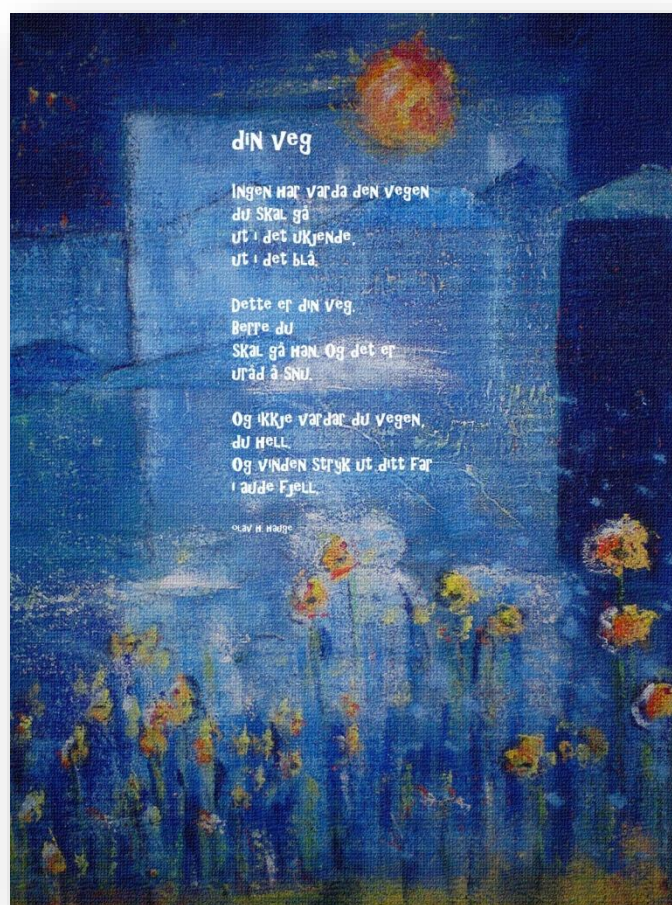 din veg
Ingen har varda den vegen
du skal gå
ut i det ukjende,
ut i det blå.
Dette er din veg.
Berre du
skal gå han. Og det er
uråd å snu.
Og ikkje vardar du vegen,
du hell.
Og vinden stryk ut ditt far
i aude fjell.
Olav H. Hauge